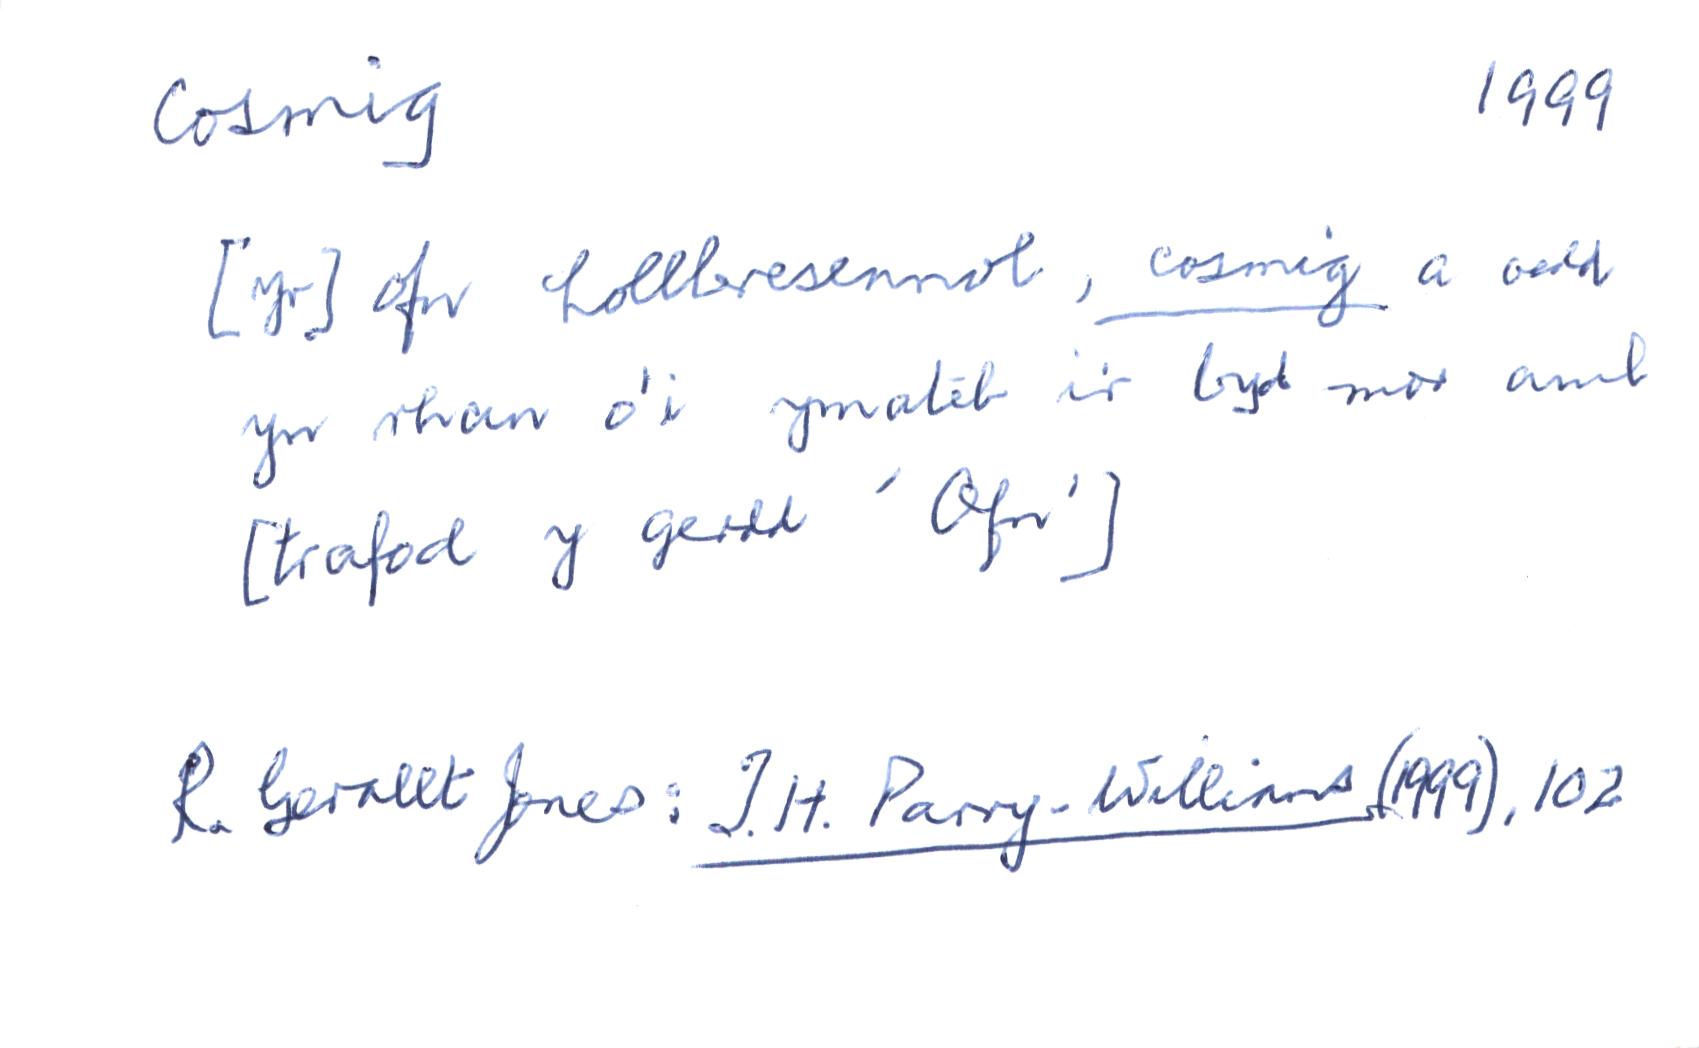 Cosmig 1999
[yr] ofn hollbresennol, cosmig a oedd
yn rhan o'i ymateb i'r byd mor aml
[trafod y gerdd 'Ofn']
R. Gerallt Jones: T.H. Parry-Williams (1999), 102